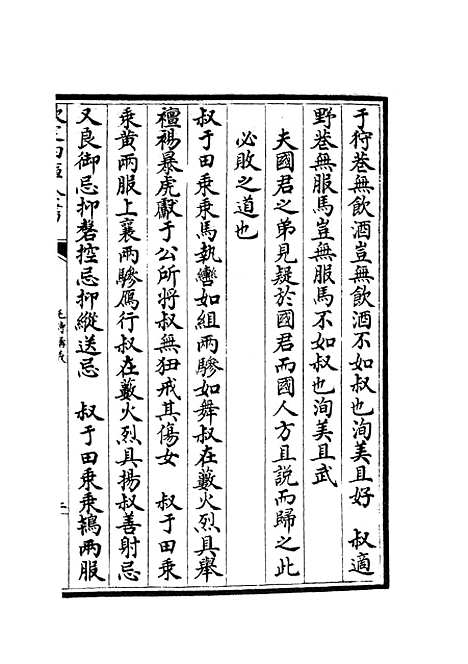 于狩巷無飲酒豈無飲酒不如叔也洵美且好　叔適
野巷無服馬豈無服馬不如叔也洵美且武
夫國君之弟見疑於國君而國人方且說而歸之此
必敗之道也
叔于田乘乘馬執轡如組兩驂如舞叔在藪火烈具舉
襢裼暴虎獻于公所將叔無狃戒其傷女　叔于田乘
乘黃兩服上襄兩驂鴈行叔在藪火烈具揚叔善射忌
又良御忌抑磬控忌抑縱送忌　叔于田乘乘鴇兩服
毛詩講義